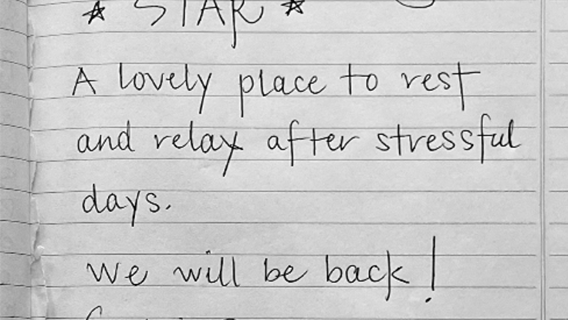 ☆ STAR ☆
A lovely place to rest
and relax after stressful
days.
We will be back!